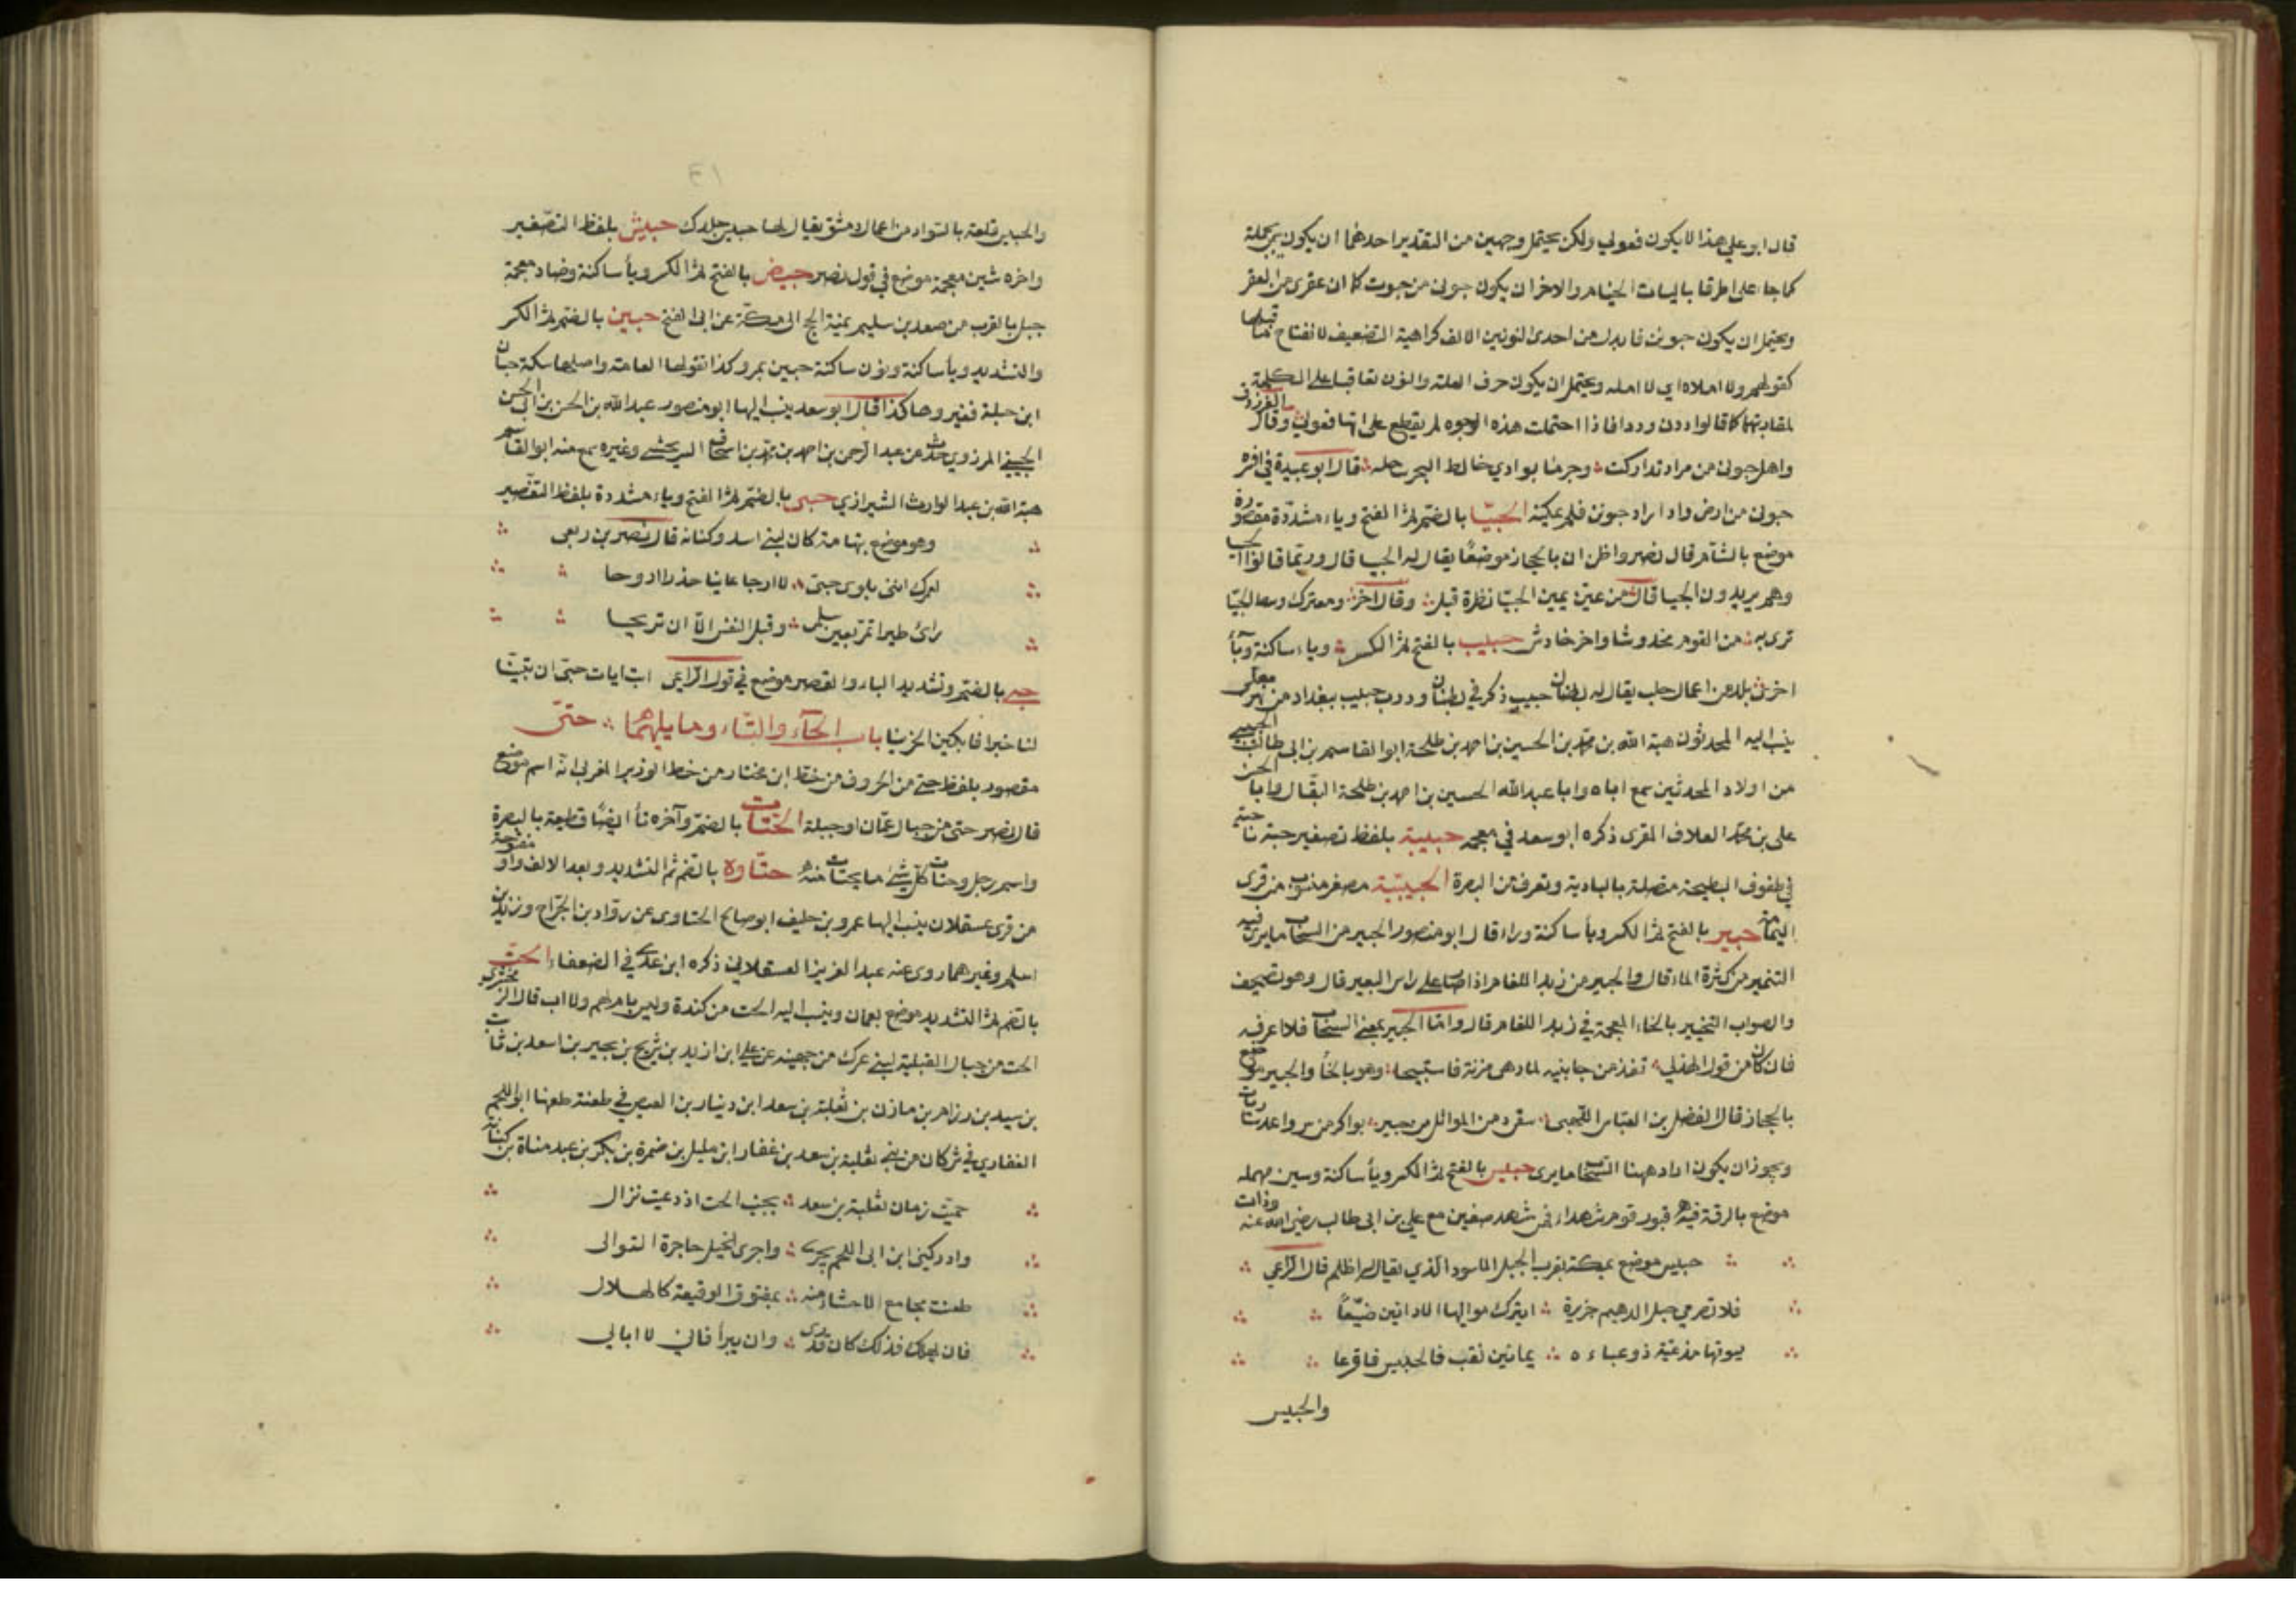 قال ابو علي هذا لا يكون فعولي ولكن يحتمل وجهين من التقدير احدهما ان يكون جملة
كما جاء على اطرقا باليات الخيام والاخر ان يكون حبونى من حبوت كما ان عفرى من العفر
ويحتمل ان يكون حبونن فابدل من احدى النونين الالف كراهية التضعيف لانفتاح ما قبلها
كقولهم ولا املاه اي لا امله ويحتمل ان يكون حرف العلة والنون تعاقبا على الكلمة
لمقاربتهما كما قالوا ددن وددا فاذا احتملت هذه الوجوه لم يقطع على انها فعولى وقال الفرزدق
واهل حبونى من مراد تداركت وجرما بوادي خالط البحر ساحله قال ابو عبيدة في
حبونى من ارض واد اراد حبونن فلم يمكنه الحبيا بالضم ثم الفتح وياء مشددة مقصورة
موضع بالشام قال نصر واظن ان بالحجاز موضعا يقال له الحبيا قال وربما قالوا الحبيا
وهم يريدون الحبيا قال من عن يمين الحبيا نظرة قبل وقال اخر ومعترك وسط الحبيا
ترى به من القوم مخدوشا واخر خادش حبيب بالفتح ثم الكسر وياء ساكنة وبآء
اخرى بلد من اعمال حلب يقال له بطنان حبيب ذكر في بطنان ودرب حبيب ببغداد من نهر معلى
ينسب اليه المحدثون هبة الله بن محمد بن الحسين بن احمد بن طلحة ابو القاسم بن ابي طالب الحبيبي
من اولاد المحدثين سمع اباه وابا عبدالله الحسين بن احمد بن طلحة البقال وابا الحسن
علي بن محمد العلاف المقرى ذكره ابو سعد في معجمه حبيبة بلفظ تصغير حبة ناحية
في طفوف البطيحة متصلة بالبادية وتقرب من البصرة الحبيبية مصغر منسوب من قرى
اليمامة حبير بالفتح ثم الكسر ويأ ساكنة وراء قال ابو منصور الحبير من السحاب ما يرى فيه
التنمير من كثرة الماء قال والحبير من زبد اللغام اذا صار على راس البعير قال وهو تصحيف
والصواب الخبير بالخاء المعجمة في زبد اللغام قال واما الحبير بمعنى السحاب فلا اعرفه
فان كان من قول الهذلي تغذمن جانبيه لما دهى مزنه فاستبيحا وهو بالخا والحبير موضع
بالحجاز قال الفضل بن العباس اللهبى سقى دمن المواثل من حبير بواكر من رواعد ساريات
ويجوز ان يكون اراد ههنا السحاب ما يرى حبيس بالفتح ثم الكسر ويأ ساكنة وسين مهملة
موضع بالرقة فيه قبور قوم شهداء ممن شهد صفين مع علي بن ابى طالب رضى الله عنه وذات
حبيس موضع بمكة بقرب الجبل الاسود الذي يقال له اظلم قال الراعي
فلا تصرمي حبل الدهيم جزيرة ايترك مواليها الادانين ضيعا
يسوقها ترعية ذو عباءه بما بين نقب فالحبيس فاقرعا
والحبيس
والحبيس قلعة بالسواد من اعمال دمشق يقال لها حبيس جلدك حبيش بلفظ التصغير
واخره شين معجمة موضع في قول نصر حبيض بالفتح ثم الكسر ويأ ساكنة وضاد معجمة
جبل بالقرب من معدن بنى سليم يمنة الحاج الى مكة عن ابى الفتح حبين بالضم ثم الكسر
والتشديد ويأ ساكنة ونون سكة حبين بمرو كذا تقولها العامة واصلها سكة حبان
ابن جبلة فغيروها كذا قال ابو سعد ينسب اليها ابو منصور عبدالله بن الحسن بن ابى الحسن
الحبيني المروزي حدث عن عبد الرحمن بن احمد بن محمد بن اسحاق السريخشي وغيره سمع منه ابو القاسم
هبة الله بن عبد الوارث الشيرازي حبى بالضم ثم الفتح وياء مشددة بلفظ التصغير
وهو موضع بتهامة كان لبني اسد وكنانة قال مضرس بن ربعى
لعمرك اننى بلوى حبى لا ارجا عانيا حذرا اروحا
راى طيرا تمر ببين سلمى وقيل النفس الا ان تريحا
حبى بالضم وتشديد الباء والقصر موضع في قول الراعى ابت ايات حبى ان تبينا
لنا خبرا فابكين الحزينا باب الحآء والتآء وما يليهما حتى
مقصور بلفظ حتى من الحروف من خط ابن مختار من خط الوزير المغربى انه اسم موضع
قال نصر حتى من جبال عمان او جبلة الحتات بالضم وآخره تأ ايضا قطيعة بالبصرة
واسم رجل وحتات كل شئ ما يحتات منه حتاوه بالضم ثم التشديد وبعد الالف واو مفتوحة
من قرى عسقلان ينسب اليها عمرو بن حليف ابو صالح الحتاوى عن رواد بن الجراح وزيد بن
اسلم وغيرهما روى عنه عبد العزيز العسقلانى ذكره ابن عدى في الضعفاء الحت
بالضم ثم التشديد موضع بعمان وينسب اليه الحت من كندة وليس بام لهم ولا اب قال الزمخشري
الحت من جبال القبلية لبني عرك من جهينة عن علي ابن ازيد بن شريح بن بجير بن اسعد بن ثابت
بن سبد بن رزام بن مازن بن ثعلبة بن سعد ابن دينار بن العبص في طعنة طعنها ابو اللحم
الغفاري في شر كان من بنى ثعلبة بن سعد بن غفار ابن مليل بن ضمرة بن بكر بن عبد مناة بن كنانة
حميت زمان ثعلبة بن سعد بجنب الحت اذ دعيت نزال
وادركنى ابن ابى اللحم يجرى واجرى الخيل حاجزة التوالى
طعنت مجامع الاحشاء منه بمفتوق الوقيعة كالهلال
فان يهلك فذلك كان قدرى وان يبرأ فانى لا ابالي